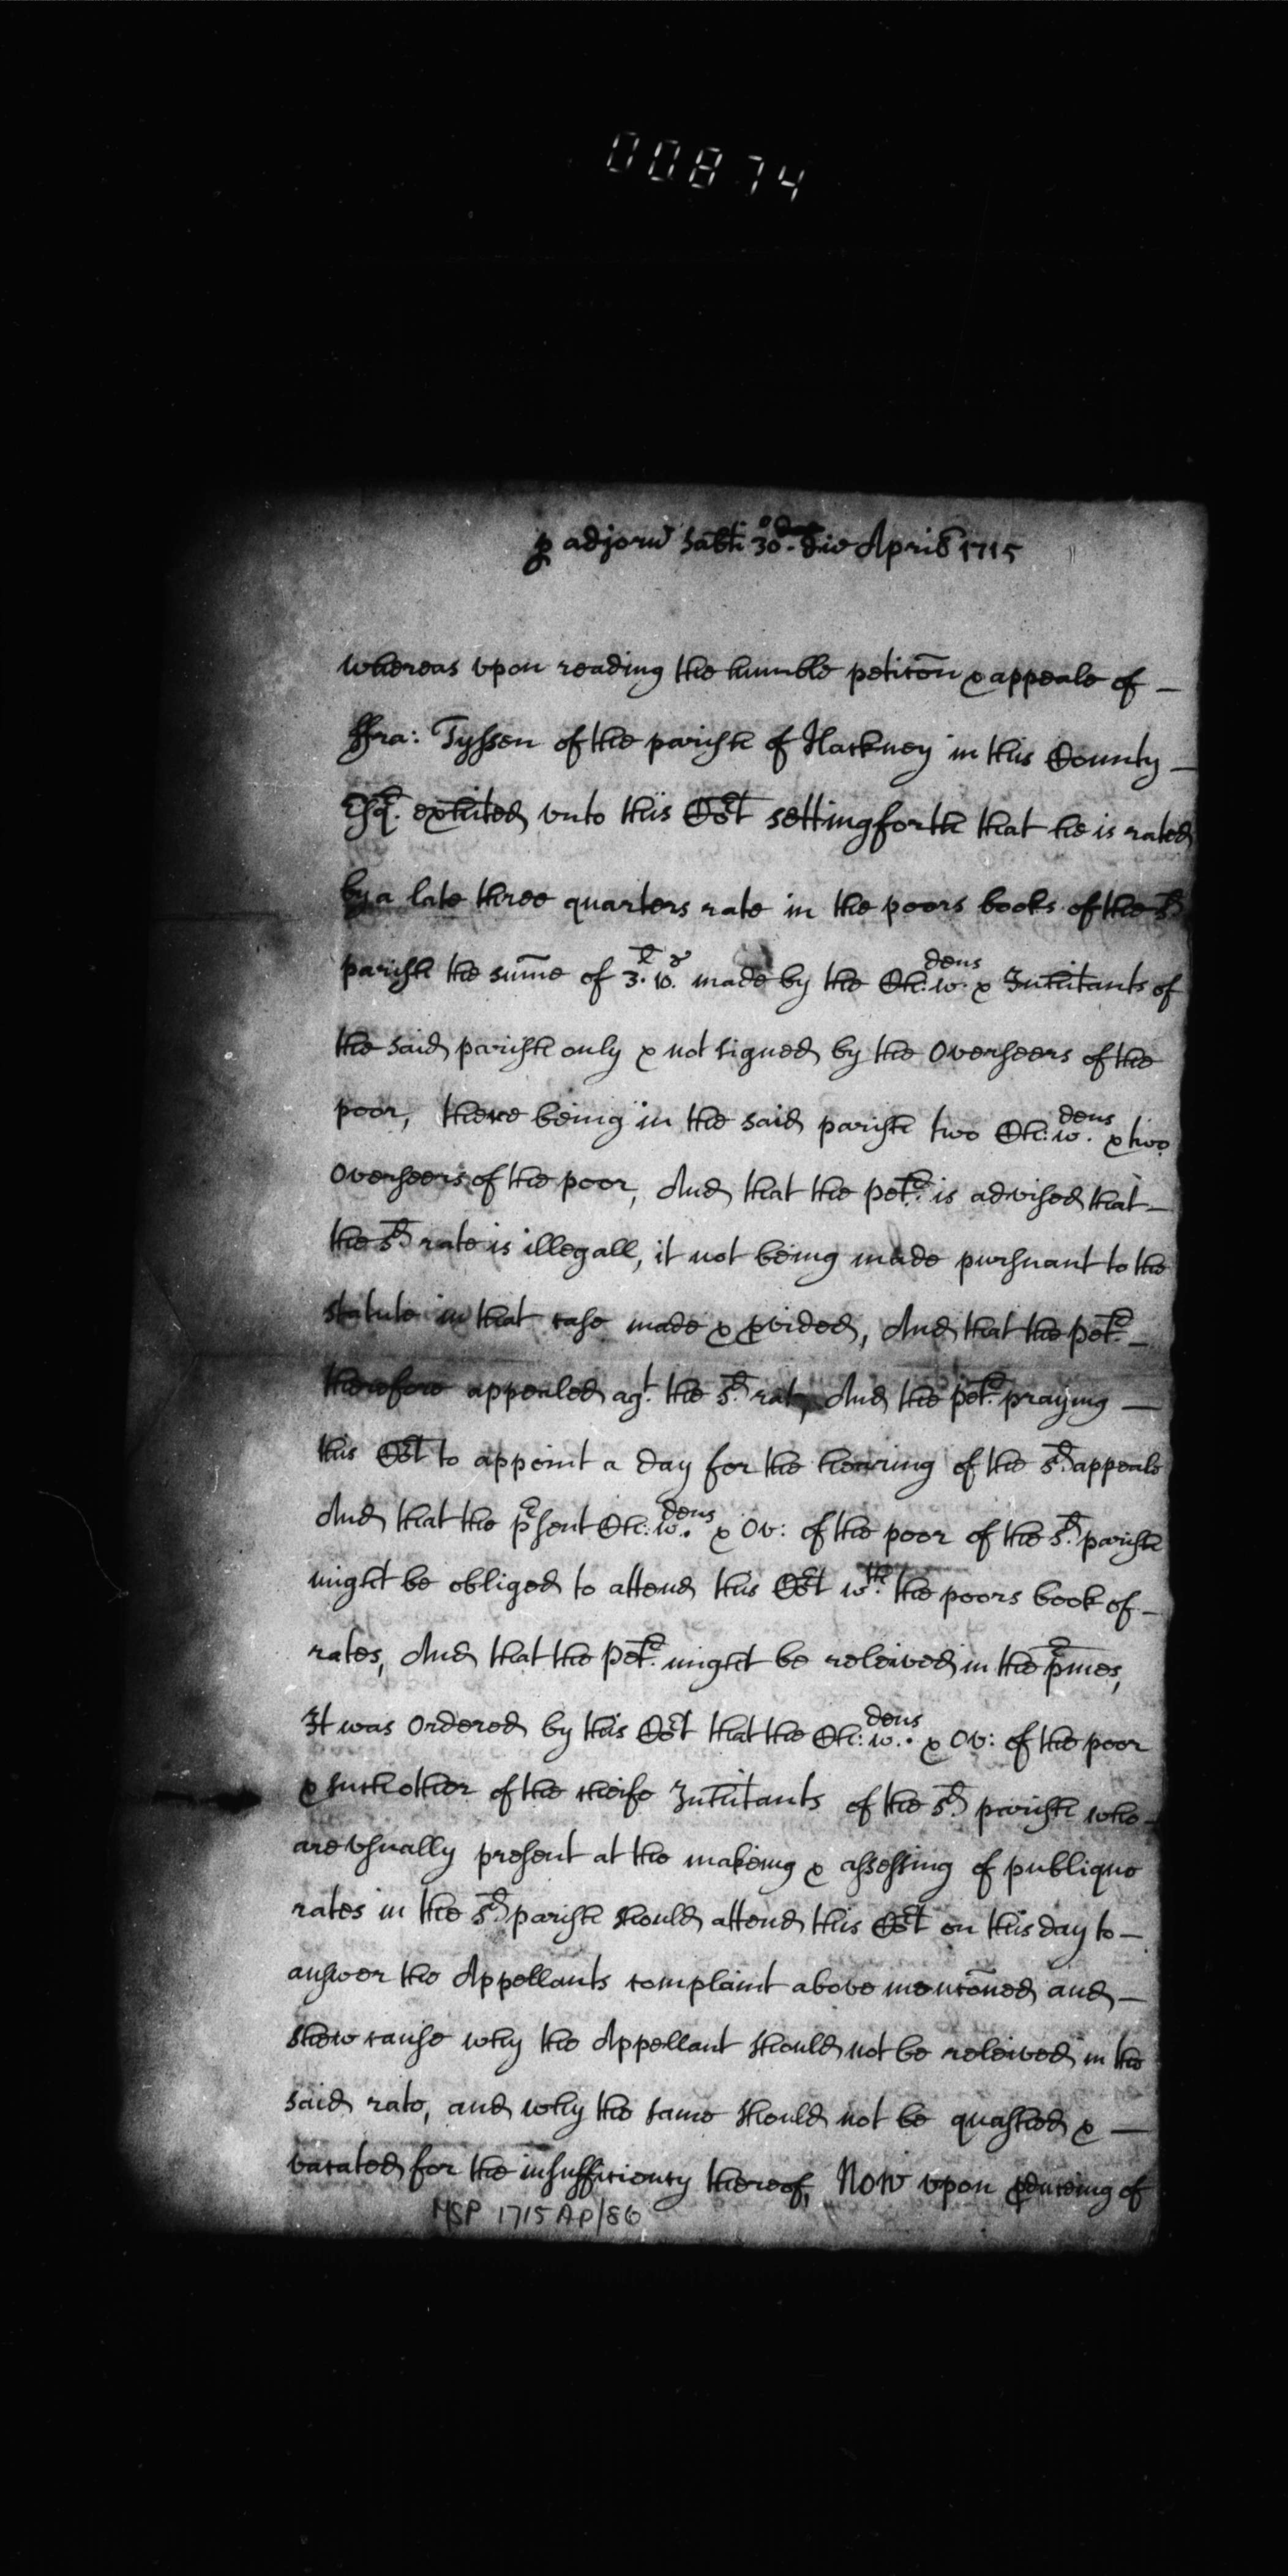 00874
p adjorn Sabti 30o. die April 1715
Whereas vpon reading the humble petic̃on & appeale of —
ffra: Tyssen of the parish of Hackney in this County —
Esqr. exhited vnto this Co͠rt setting forth that he is rated
by a late three quarters rate in the poors books of the sd
parish the sum̃e of 3l. 10s. made by the Ch: w.dens & Inhitants of
the said parish only & not signed by the Overseers of the
poor, there being in the said parish two Ch: w.dens & two
Overseers of the poor, And that the petr. is advised that —
the sd. rate is illegall, it not being made pursuant to the
statute in that case made & pvided, And that the petr. —
therefore appealed agt. the sd. rate, And the petr. praying —
this Co͠rt to appoint a day for the hearing of the sd. appeale
And that the pesent Ch: w.dens & Ov: of the poor of the sd. parish
might be obliged to attend this Co͠rt wth. the poors book of —
rates, And that the Petr. might be releived in the pemes,
It was Ordered by this Co͠rt that the Ch: w.dens & Ov: of the poor
& such other of the cheife Inhitants of the sd. parish who —
are vsually present at the makeing & assessing of publique
rates in the sd. parish should attend this Co͠rt on this day to —
answer the Appellants complaint above menc̃oned and —
shew cause why the Appellant should not be releived in the
said rate, and why the same should not be quashed & —
vacated for the insufficiency thereof, Now vpon pduceing of
MSP 1715 AP/86